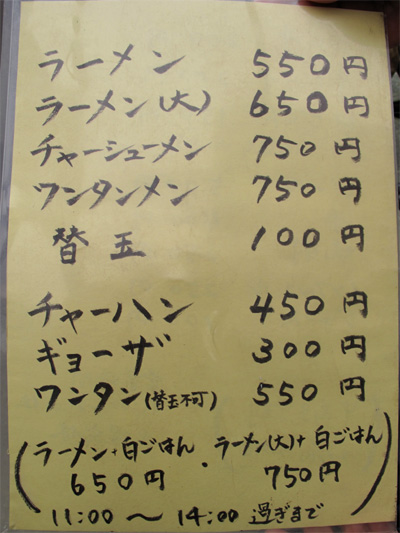 ラーメン 550円
ラーメン(大) 650円
チャーシューメン 750円
ワンタンメン 750円
替玉 100円
チャーハン 450円
ギョーザ 300円
ワンタン(替玉不可) 550円
(ラーメン+白ごはん ・ ラーメン(大)+白ごはん)
650円 750円
11:00 〜 14:00 過ぎまで